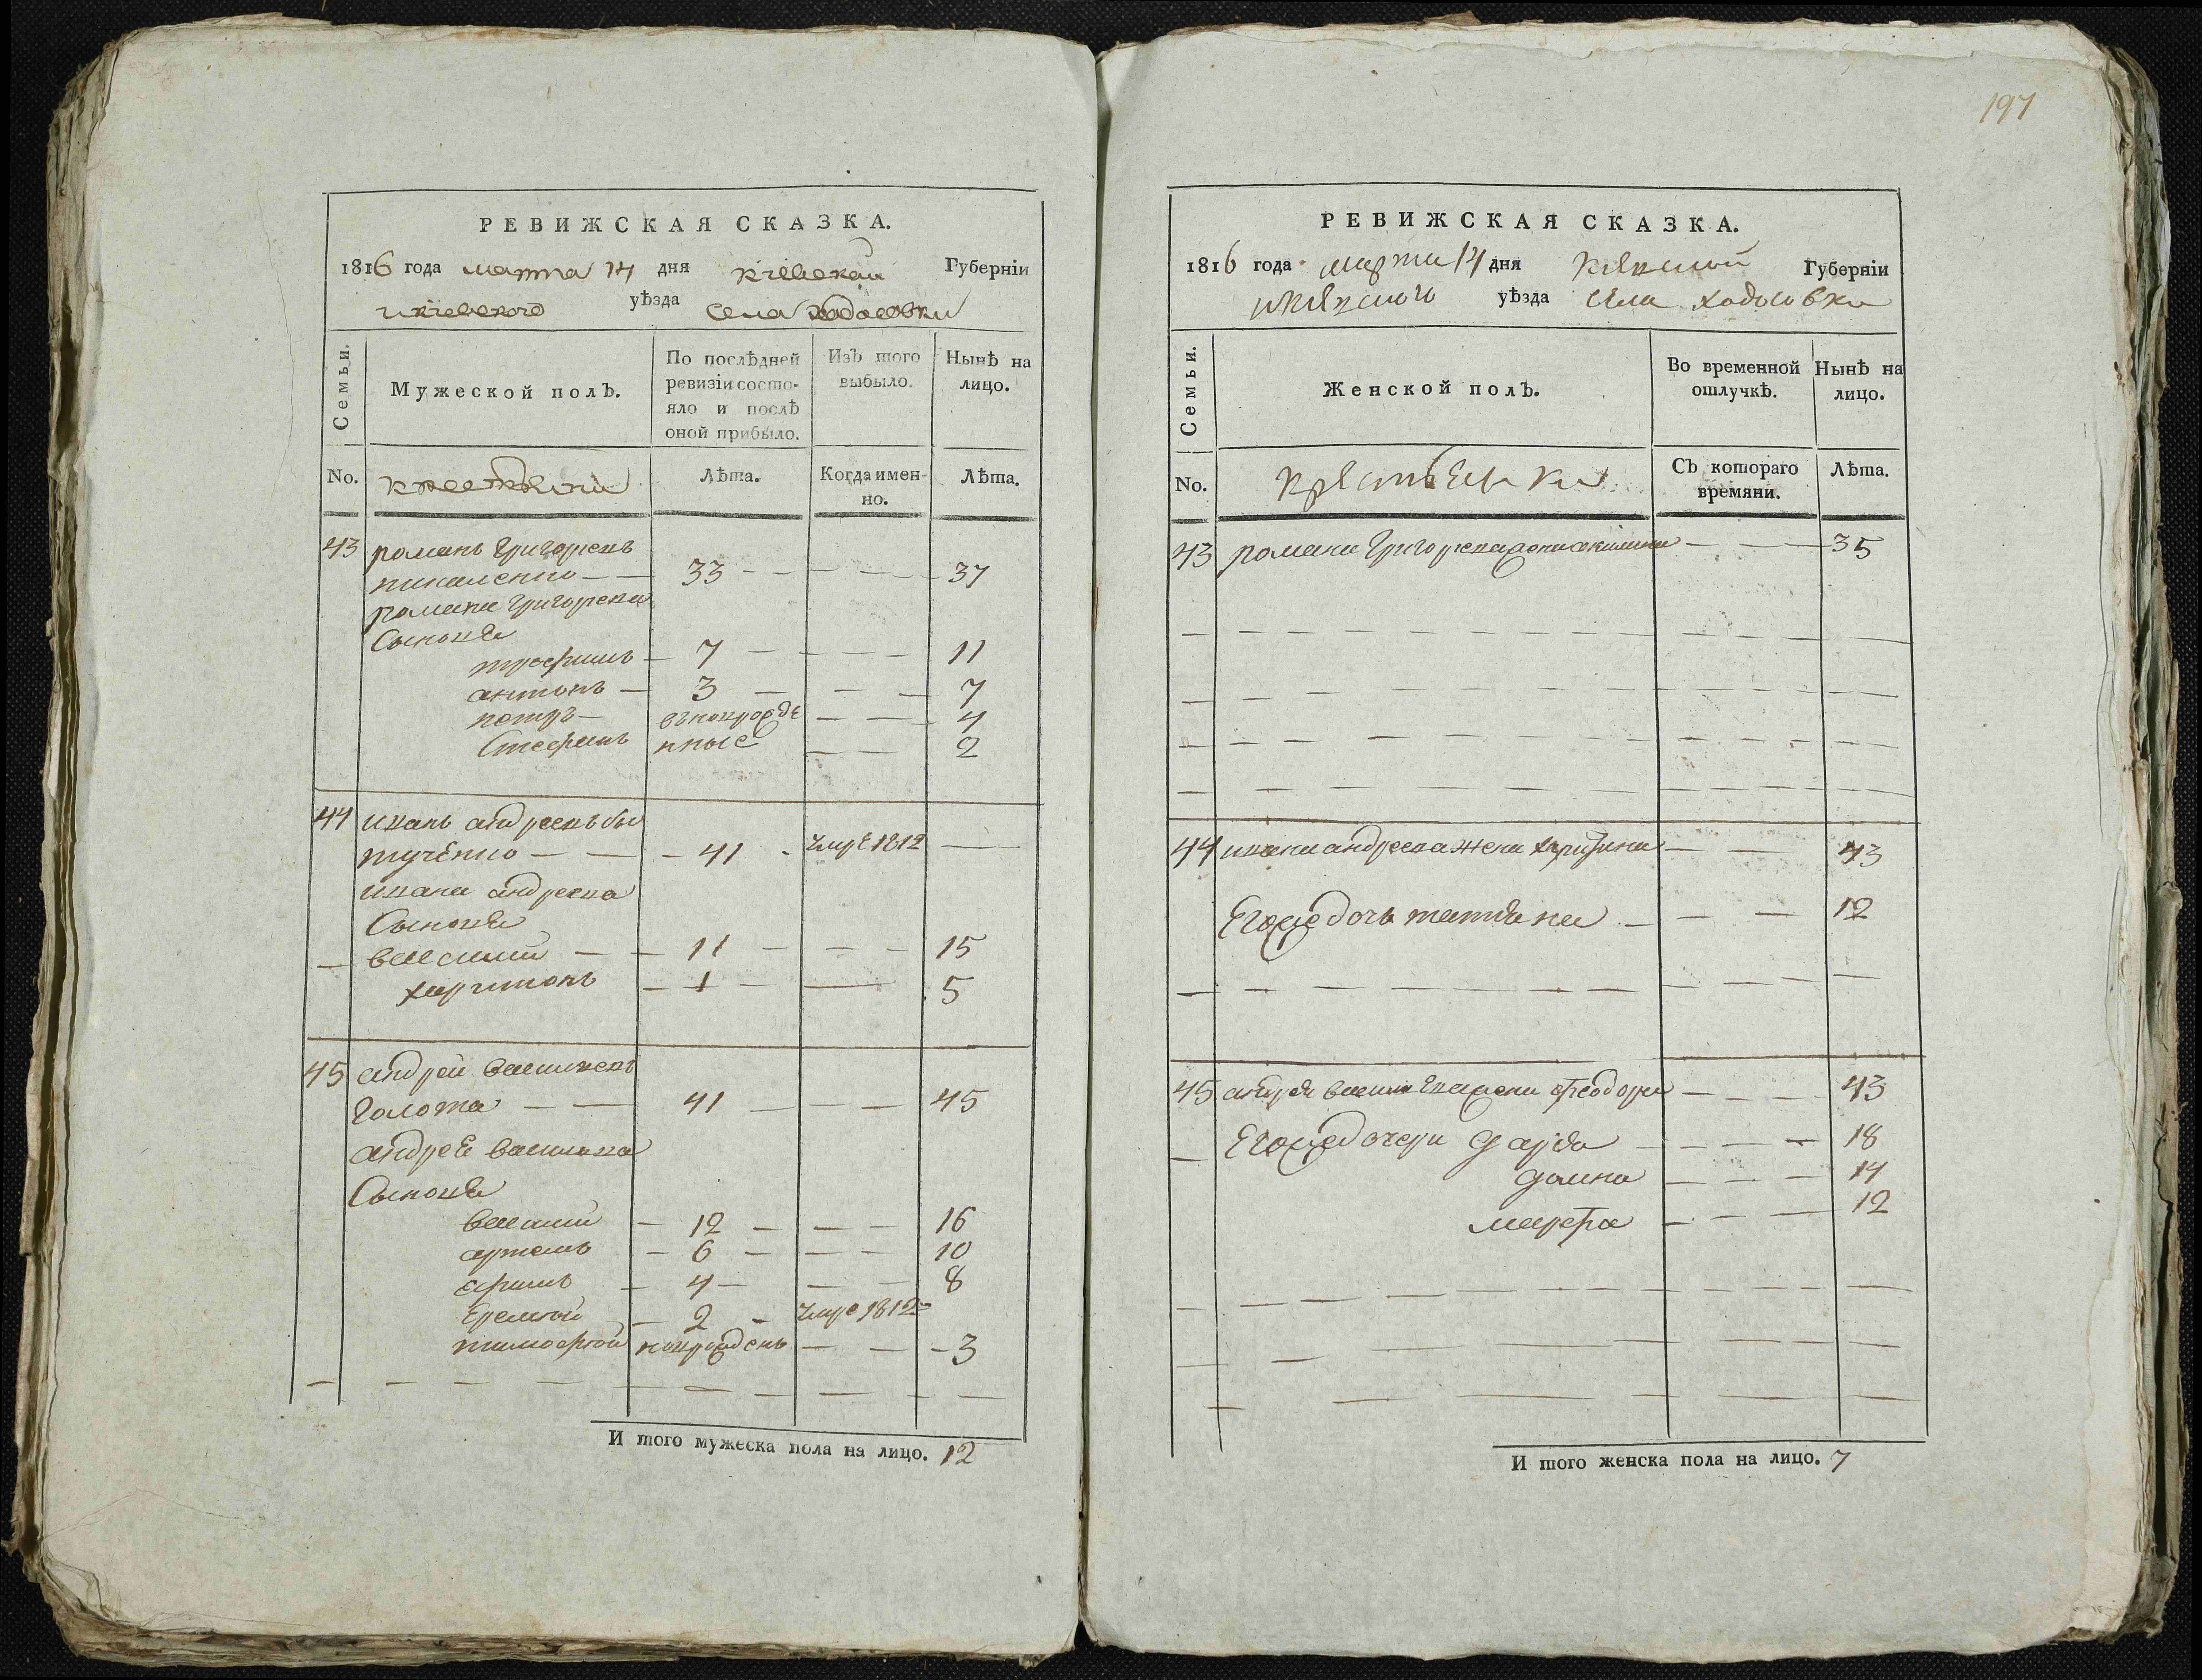 197
РЕВИЖСКАЯ СКАЗКА.
1816 года марта 14 дня кіевской Губерніи
икіевского уѣзда села ходосовки
Семьи.
Мужеской полЪ.
По послѣдней ревизіи состо-
яло и послѣ
оной прибыло.
ИзЪ того
выбыло.
Нынѣ на
лицо.
No.
крестьяни
Лѣта.
Когда имен-
но.
Лѣта.
43 романъ григорьевъ
33 37
романа григорьева
сыновья
трофимъ 7 11
антонъ 3 7
петръ вновърожде 4
стефанъ нные 2
44 иванъ андреевъ бы
41 умре 1812
ивана андреева
сыновья
василий 11 15
харитонъ 1 5
45 андрей василиевъ
голота 41 45
андрея василиева
сыновья
василий 12 16
артемъ 6 10
ефимъ 4 8
еремей 2 умре 1812
тимофей новрожденъ 3
И того мужеска пола на лицо. 12
РЕВИЖСКАЯ СКАЗКА.
1816 года марта 14 дня киевской Губерніи
икиевского уѣзда села ходосовки
Семьи.
Женской полЪ.
Во временной
отлучкѣ.
Нынѣ на
лицо.
No.
крестьянки
СЪ котораго
времяни.
Лѣта.
43 романа григорьева жена акилина 35
44 ивана андреева жена 43
Егоже дочь татьяна 12
45 андрея василиева жена феодора 43
Егоже дочери дарья 18
домна 14
марфа 12
И того женска пола на лицо. 7